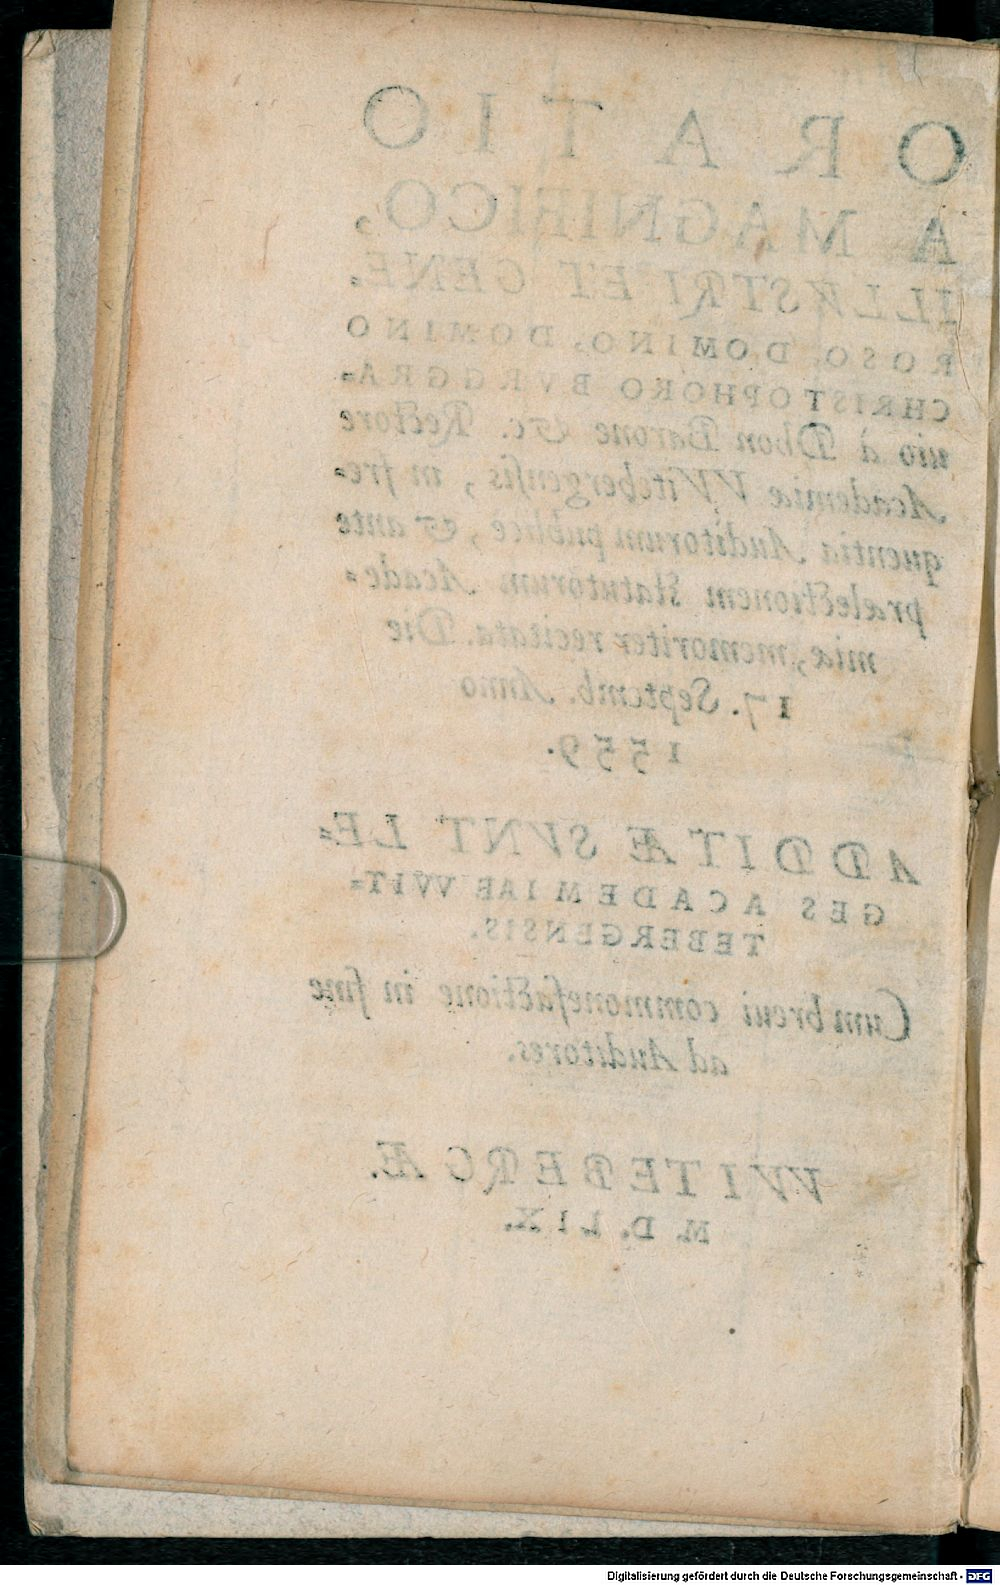 ORATIO
A MAGNIFICO,
ILLVSTRI ET GENE-
ROSO, DOMINO, DOMINO
CHRISTOPHORO BVRGGRA-
uio à Dhon Barone &c. Rectore
Academiæ VVitebergensis, in fre-
quentia Auditorum publice, & ante
prælectionem statutorum Acade-
miæ, memoriter recitata. Die
17. Septemb. Anno
1559.
ADDITÆ SVNT LE-
GES ACADEMIAE VVIT-
TEBERGENSIS.
Cum breui commonefactione in fine
ad Auditores.
VVITEBERGÆ.
M. D. LIX.
Digitalisierung gefördert durch die Deutsche Forschungsgemeinschaft - DFG